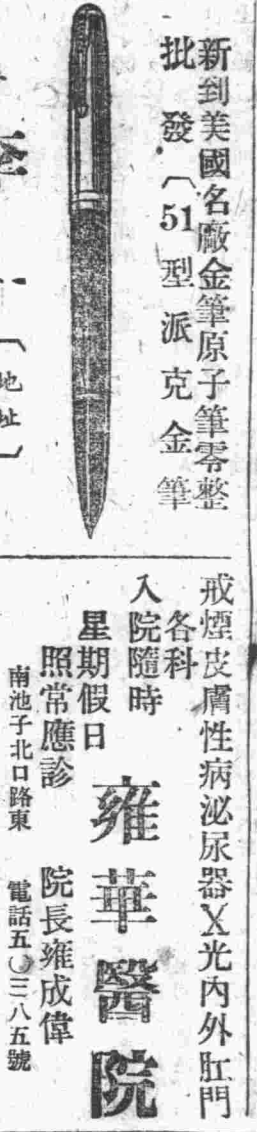 新到美國名廠金筆原子筆零整
批發〔51型派克金筆
〔地址〕
戒煙皮膚性病泌尿器X光內外肛門
各科
入院隨時
星期假日
照常應診
雍華醫院
院長雍成偉
南池子北口路東
電話五〇三八五號